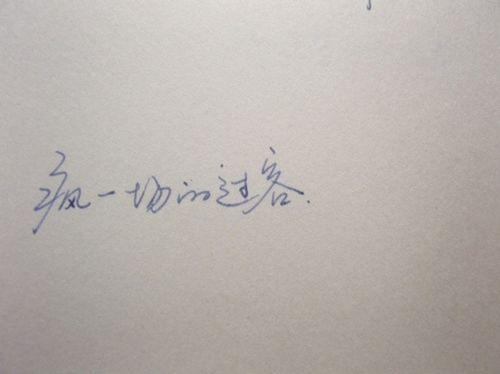 疯一场的过客.